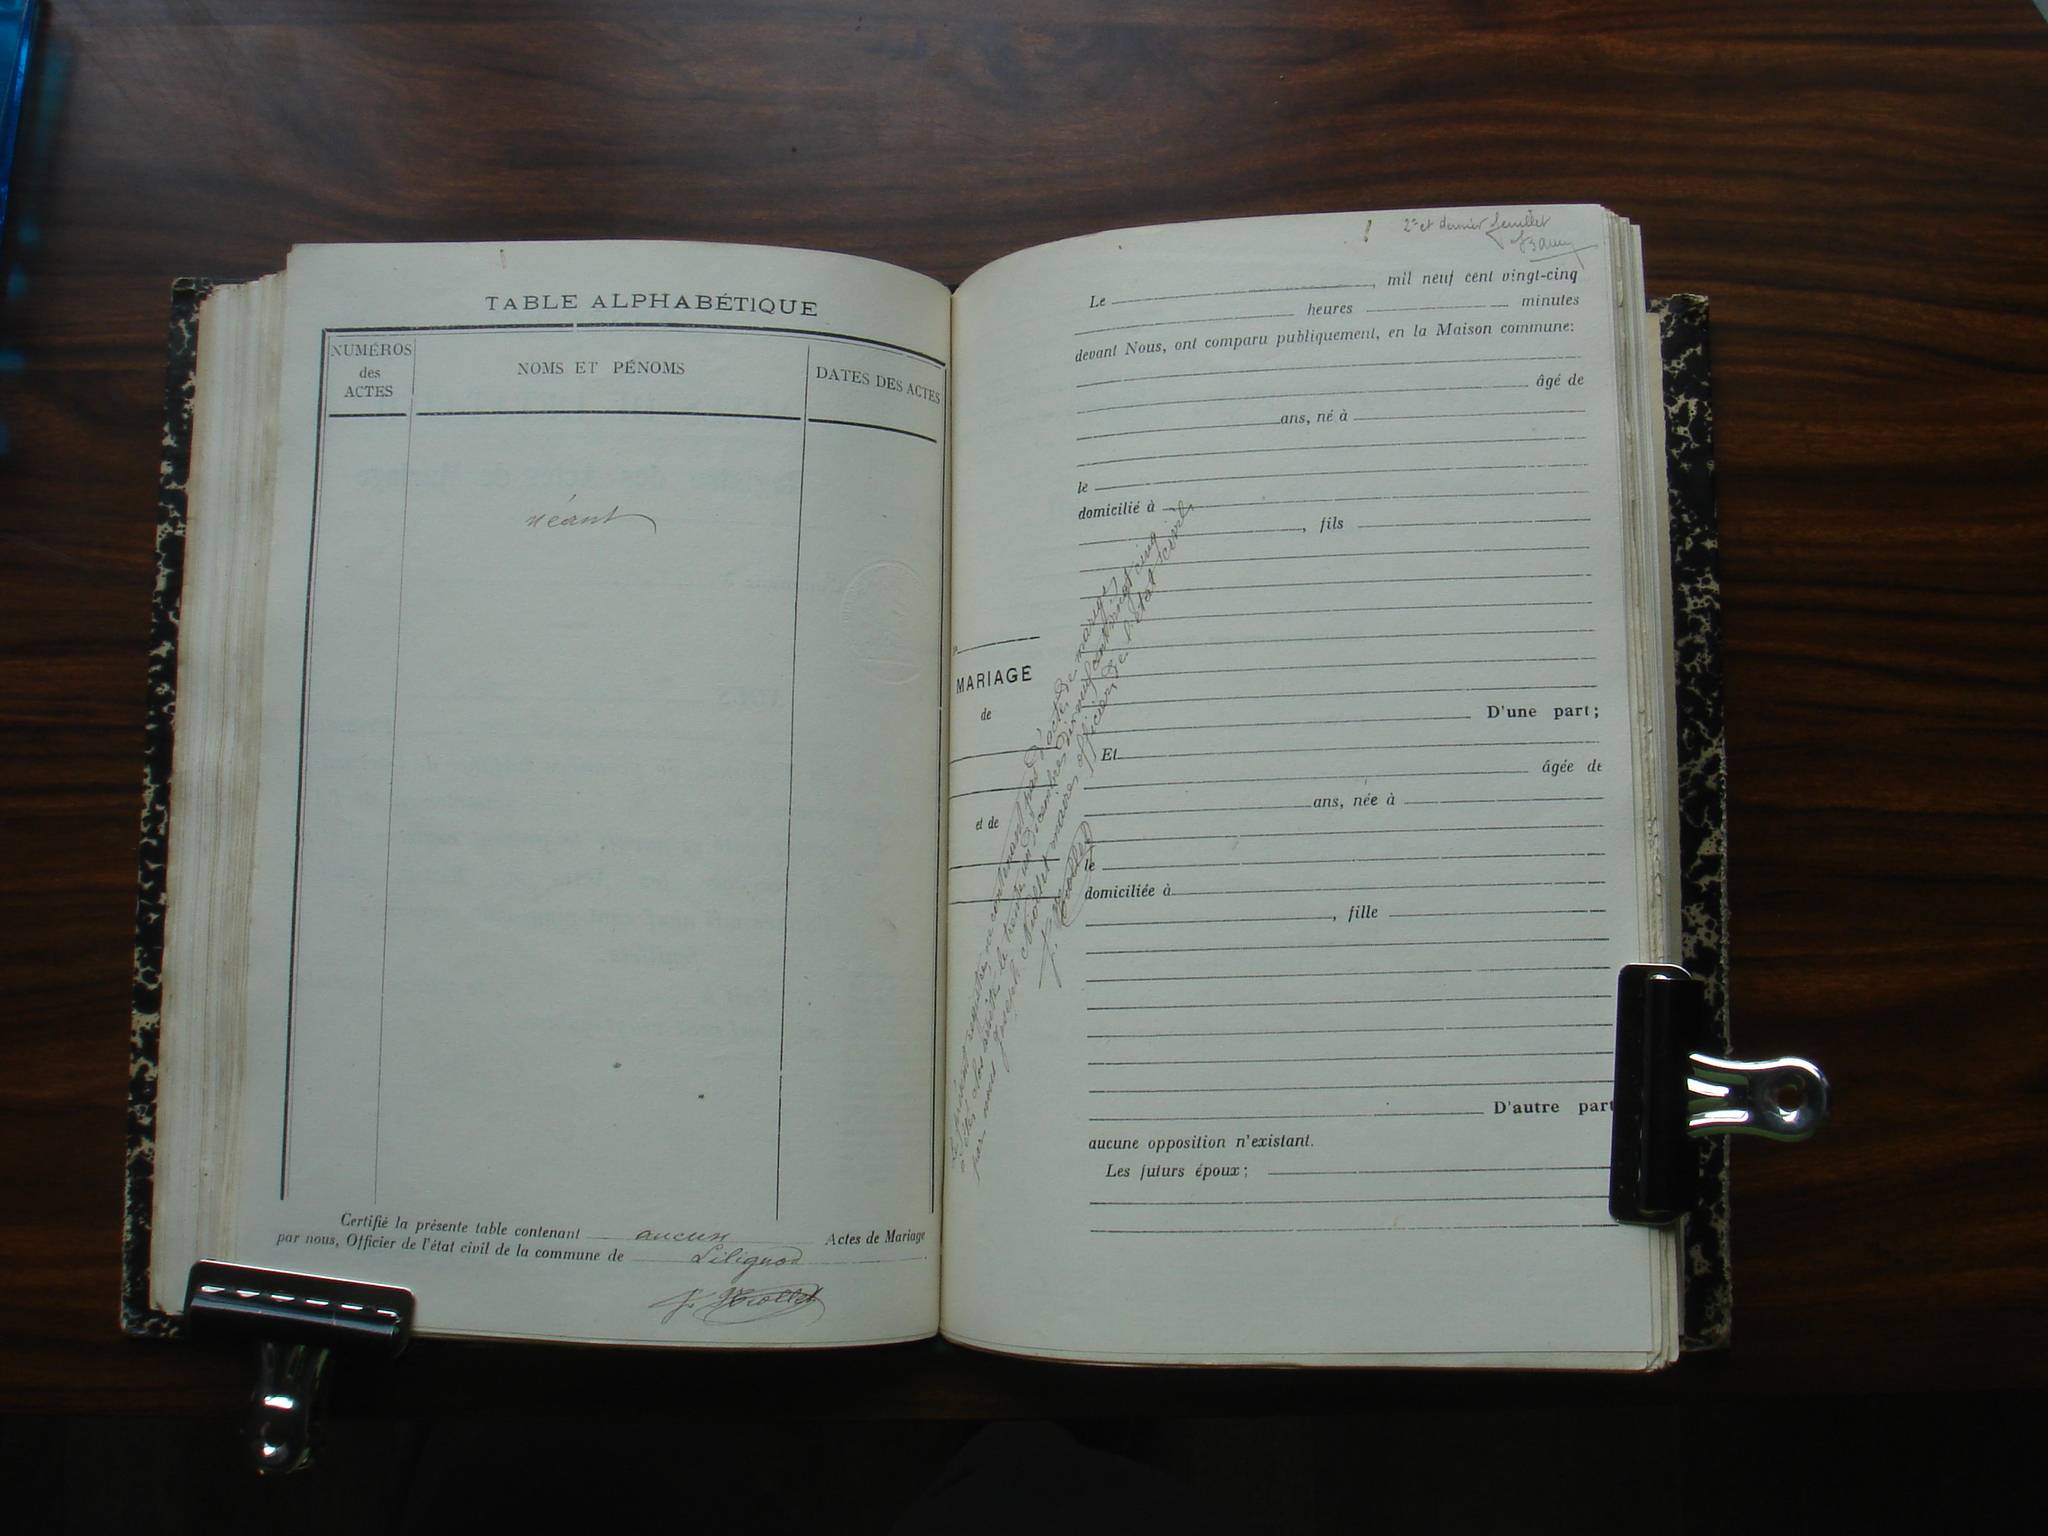 TABLE ALPHABÉTIQUE
NUMÉROS
des
ACTES
NOMS ET PÉNOMS
DATES DES ACTES
néant
Certifié la présente table contenant aucun Actes de Mariage
par nous, Officier de l'état civil de la commune de Lilignod
2e et dernier feuillet
Le , mil neuf cent vingt-cinq
heures minutes
devant Nous, ont comparu publiquement, en la Maison commune:
âgé de
ans, né à
le
domicilié à
, fils
MARIAGE
de
et de
D'une part;
Et
âgée de
ans, née à
le
domiciliée à
, fille
D'autre part
aucune opposition n'existant.
Les futurs époux;
Le présent registre ne contenant pas d'acte de mariages
a été clos arrêté le trente un décembre dix neuf cent vingt cinq
par nous Joseph maire officier de l'état civil